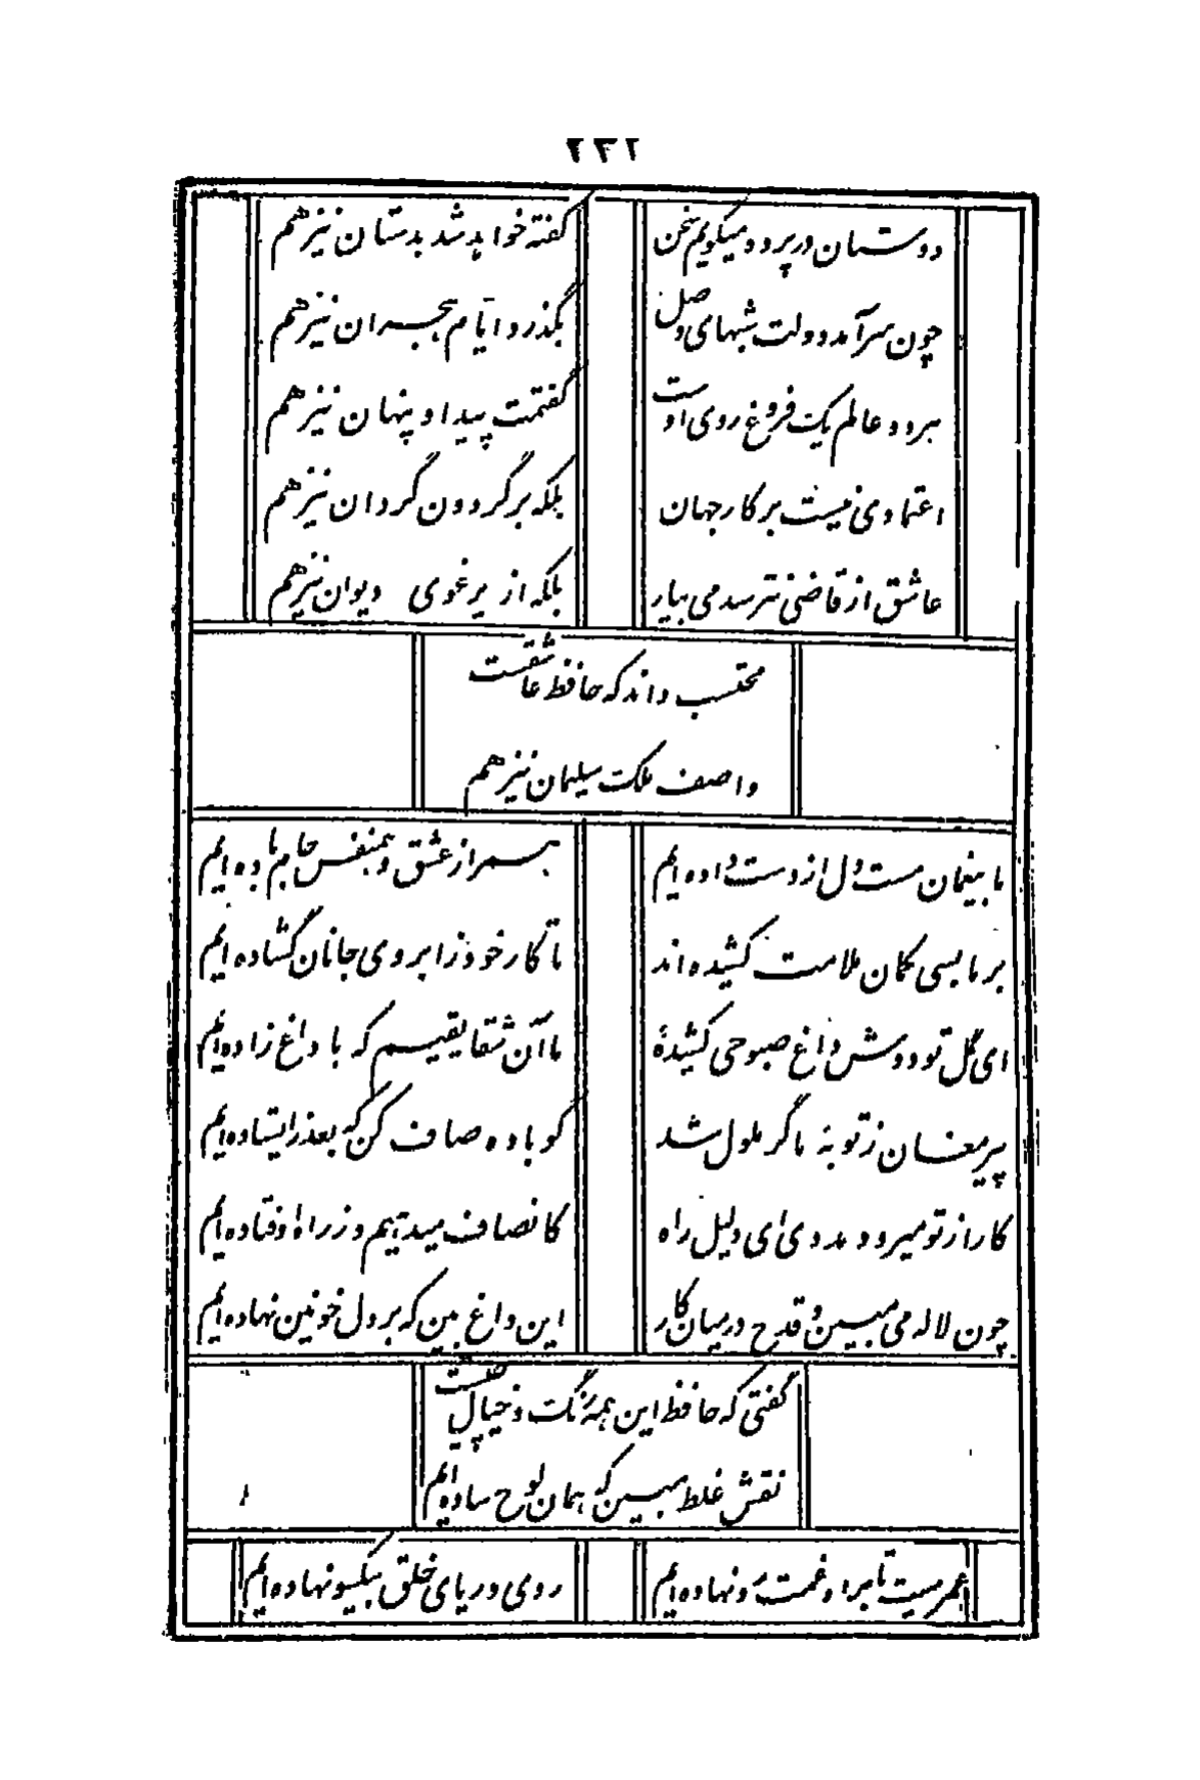 ۲۳۲
دوستان در پرده میگویم سخن
گفته خواهد شد بدستان نیز هم
چون سر آمد دولت شبهای وصل
بگذرد ایام هجران نیز هم
هر دو عالم یک فروغ روی اوست
گفتمت پیدا و پنهان نیز هم
اعتمادی نیست بر کار جهان
بلکه بر گردون گردان نیز هم
عاشق از قاضی نترسد می بیار
بلکه از یرغوی دیوان نیز هم
محتسب داند که حافظ عاشقست
واصف ملک سلیمان نیز هم
ما بیغمان مست دل از دست داده ایم
همراز عشق و همنفس جام باده ایم
بر ما بسی کمان ملامت کشیده اند
تا کار خود ز ابروی جانان گشاده ایم
ای گل تو دوش داغ صبوحی کشیدهٔ
ما آن شقایقیم که با داغ زاده ایم
پیر مغان ز توبهٔ ما گر ملول شد
گو باده صاف کن که بعذر ایستاده ایم
کار از تو میرود مددی ای دلیل راه
کانصاف میدهیم و ز راه اوفتاده ایم
چون لاله می مبین و قدح در میان کار
این داغ بین که بر دل خونین نهاده ایم
گفتی که حافظ این همه رنگ و خیال چیست
نقش غلط مبین که همان لوح ساده ایم
عمریست تا براه غمت رو نهاده ایم
روی و ریای خلق بیکسو نهاده ایم